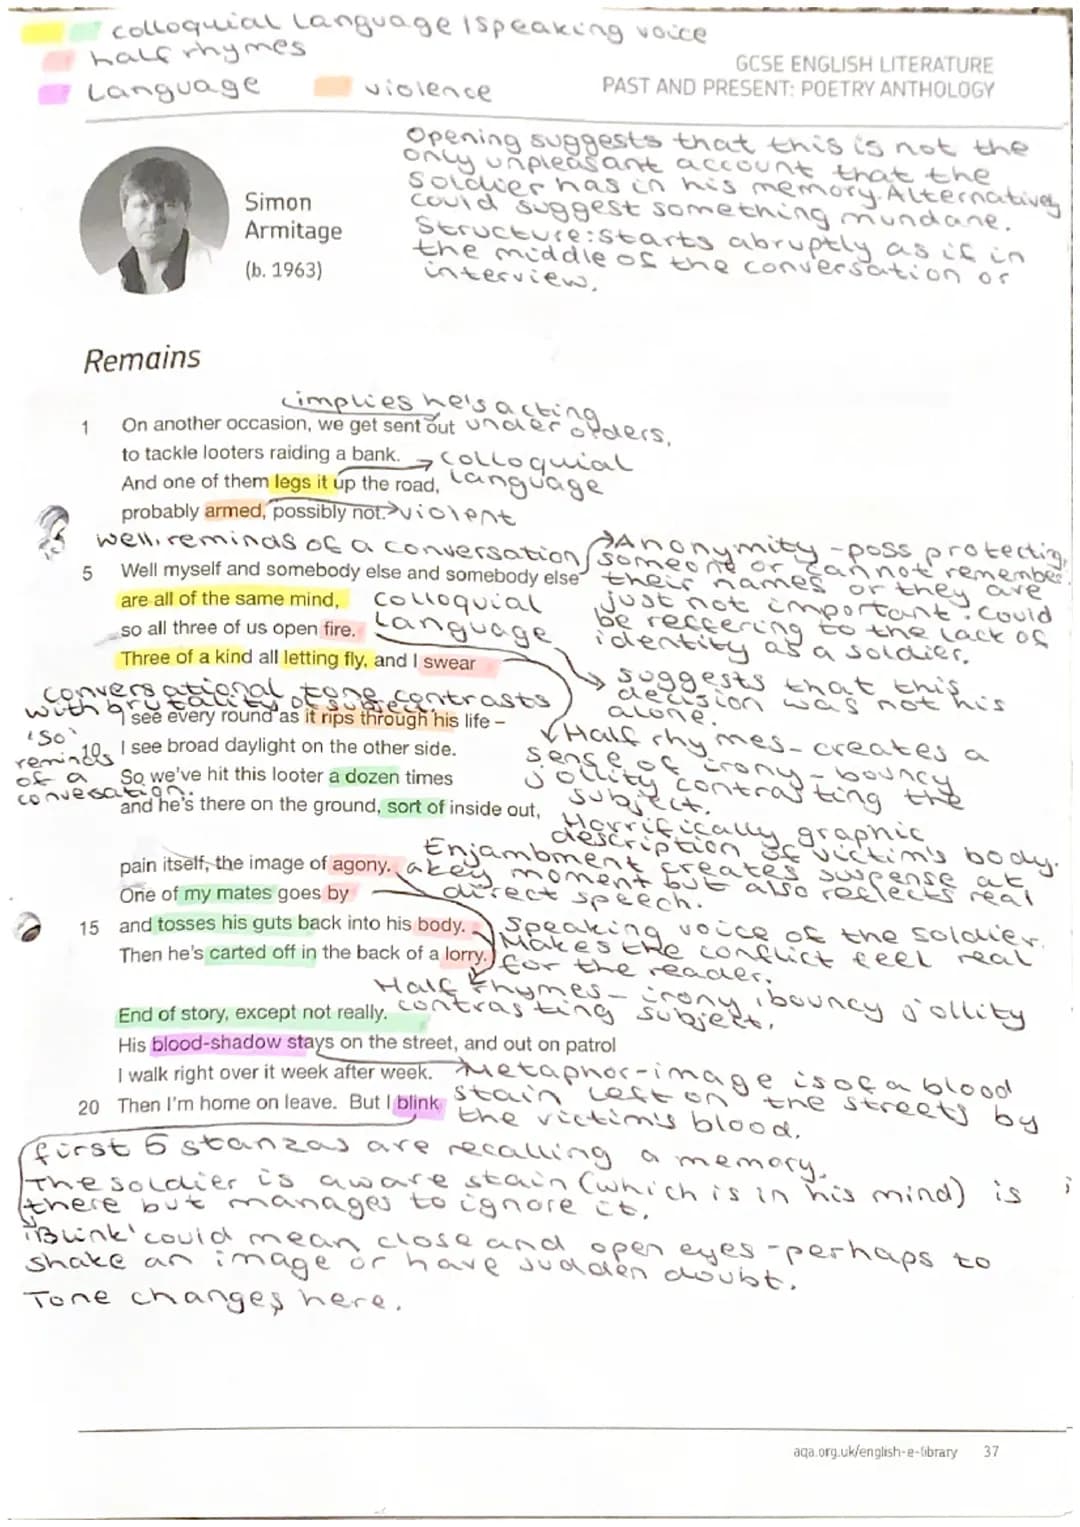 colloquial language / speaking voice
half rhymes
Language
violence
GCSE ENGLISH LITERATURE
PAST AND PRESENT: POETRY ANTHOLOGY
Simon
Armitage
(b. 1963)
Opening suggests that this is not the
only unpleasant account that the
soldier has in his memory. Alternatively
could suggest something mundane.
Structure: starts abruptly as if in
the middle of the conversation or
interview.
Remains
implies he's acting
under orders.
1 On another occasion, we get sent out
to tackle looters raiding a bank.
colloquial
language
And one of them legs it up the road,
probably armed, possibly not.
violent
well, reminds of a conversation
Anonymity - poss protecting
someone or cannot remember
their names or they are
just not important. Could
be reffering to the lack of
identity as a soldier.
5 Well myself and somebody else and somebody else
are all of the same mind,
colloquial
Language
so all three of us open fire.
Three of a kind all letting fly, and I swear
suggests that this
decision was not his
alone.
conversational tone contrasts
with brutality of subject.
I see every round as it rips through his life –
'So'
reminds
of a
convesation.
10 I see broad daylight on the other side.
So we've hit this looter a dozen times
and he's there on the ground, sort of inside out,
Half rhymes - creates a
sense of irony - bouncy
jollity contrasting the
subject.
Horrifically graphic
description of victim's body.
Enjambment creates suspense at
a key moment but also reflects real
direct speech.
pain itself, the image of agony.
One of my mates goes by
15 and tosses his guts back into his body.
Then he's carted off in the back of a lorry.
Speaking voice of the soldier.
Makes the conflict feel real
for the reader.
Half rhymes - irony, bouncy jollity
contrasting subject.
End of story, except not really.
His blood-shadow stays on the street, and out on patrol
I walk right over it week after week.
20 Then I'm home on leave. But I blink
Metaphor - image is of a blood
stain left on the streets by
the victim's blood.
first 5 stanzas are recalling a memory.
The soldier is aware stain (which is in his mind) is
there but manages to ignore it.
'Blink' could mean close and open eyes - perhaps to
shake an image or have sudden doubt.
Tone changes here.
aqa.org.uk/english-e-library 37